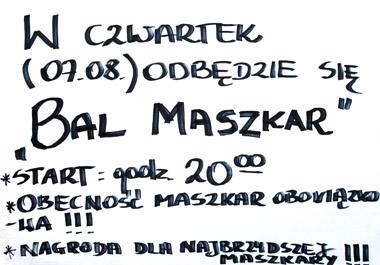 W CZWARTEK
(07.08.) ODBĘDZIE SIĘ
„BAL MASZKAR"
*START: godz. 20⁰⁰
*OBECNOŚĆ MASZKAR OBOWIĄZKO-
-WA !!!
*NAGRODA DLA NAJBRZYDSZEJ
MASZKARY !!!